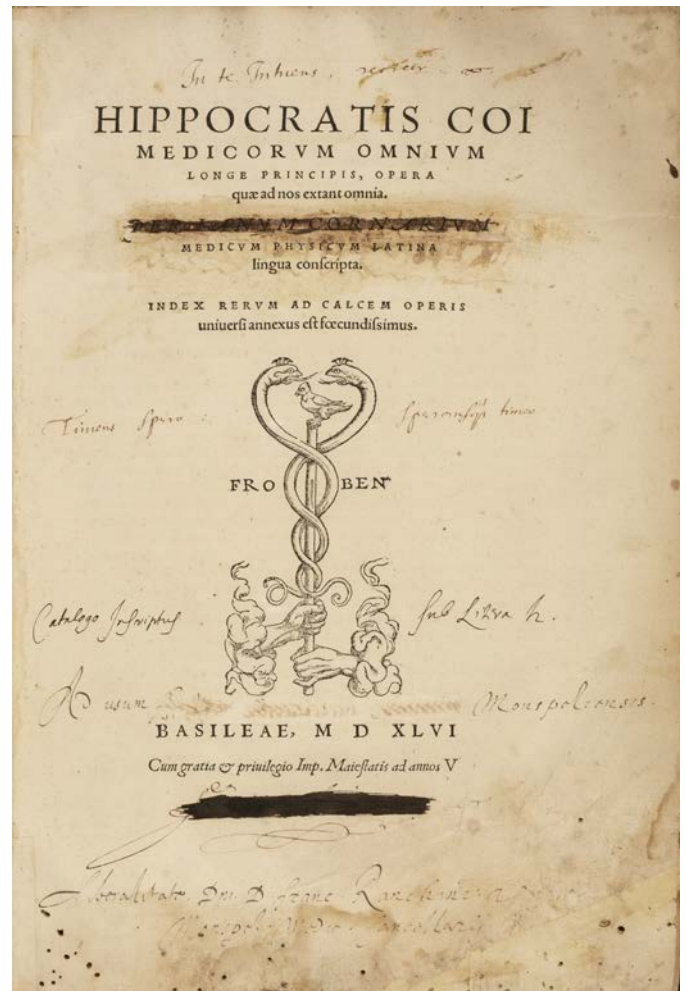 In te
HIPPOCRATIS COI
MEDICORVM OMNIVM
LONGE PRINCIPIS, OPERA
quæ ad nos extant omnia.
PER IANVM CORNARIVM
MEDICVM PHYSICVM LATINA
lingua conſcripta.
INDEX RERVM AD CALCEM OPERIS
uniuerſi annexus eſt fœcundiſsimus.
Timens spero
timeo
FRO BEN
Catalogo Inscriptus sub Littra h.
Ad usum Monspeliensis
BASILEAE, M D XLVI
Cum gratia & priuilegio Imp. Maieſtatis ad annos V
D Franc Ranchani